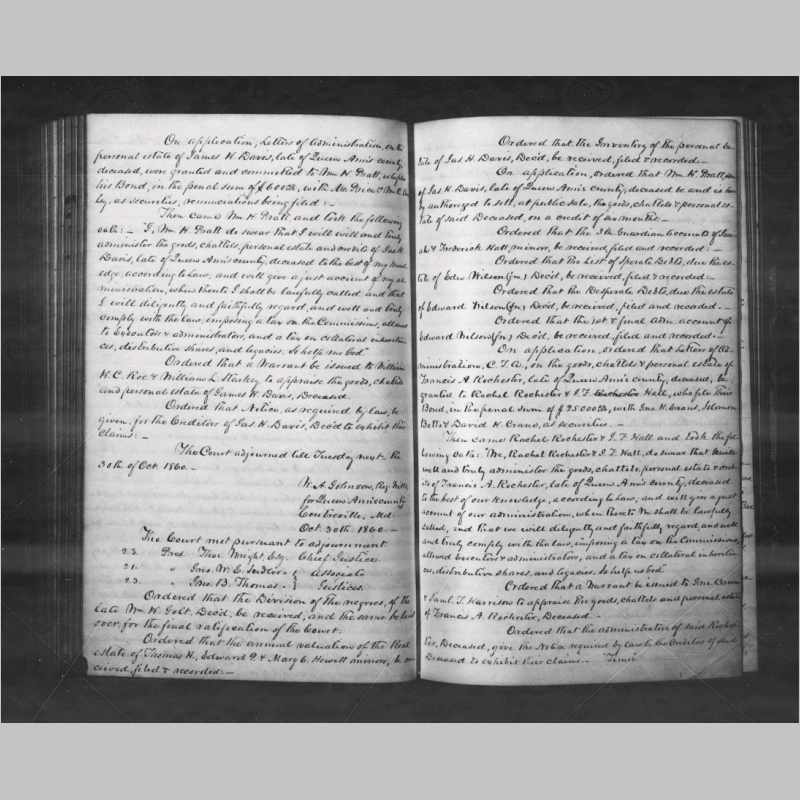 On application, Letters of Administration, on the
personal estate of James H. Davis, late of Queen Ann's county,
deceased, were granted and committed to Wm H. Pratt, who files
his Bond, in the penal sum of $600 00/100, with
as securities, renunciations being filed:-
Then came Wm H. Pratt, and took the following
oath:- "I, Wm H. Pratt do swear that I will well and truly
administer the goods, chattels, personal estate and credits of Jas H.
Davis, late of Queen Ann's county, deceased to the best of my knowl-
edge, according to law, and will give a just account of my ad-
ministration, when thereto I shall be lawfully called, and that
I will diligently and faithfully regard, and well and truly
comply with the law, imposing a tax on the Commissions, allowed
to Executors & administrators, and a tax on collateral inheritan-
ces, distributive shares, and legacies, So help me God"
Ordered that a Warrant be issued to William
H. C. Roe & William L. Starkey to appraise the goods, chattels
and personal estate of James H. Davis, Deceased.
Ordered that Notice, as required by law, be
given, for the Creditors of Jas H. Davis, Dec'd to exhibit their
claims:-
The Court adjourned till Tuesday next the
30th of Oct. 1860.-
W. A. Johnson, Reg. Wills
for Queen Ann's county
Centreville, Md.
Oct. 30th 1860.-
The Court met pursuant to adjournment
23. Pres. Thos. Wright, Esq. Chief Justice.
21. " Jno. W. E. Sudler } Associate
23. " Jno. B. Thomas. } Justices.
Ordered that the Division of the negroes, of the
late Wm H. Golt. Dec'd, be received, and the same to lie
over, for the final ratification of the Court.
Ordered that the annual valuations of the Real
Estate of Thomas H., Edward P. & Mary C. Hewitt minors, be re-
ceived, filed & recorded:-
Ordered that the Inventory of the personal es-
tate of Jas H. Davis, Dec'd, be received, filed & recorded.-
On application, ordered that Wm H. Pratt,
of Jas H. Davis, late of Queen Ann's county, deceased be and is here-
by authorized to sell, at public sale, the goods, chattels & personal es-
tate of said Deceased, on a credit of six months.-
Ordered that the Guardian accounts of
& Frederick Hall, minor, be received filed and recorded:-
Ordered that the List of Sperate Debts, due the es-
tate of Edw. Wilson (fn) Dec'd, be received, filed & recorded.-
Ordered that the Desperate Debts, due the estate
of Edward Wilson (fn) Dec'd, be received, filed and recorded.-
Ordered that the 1st & final Adm. account of
Edward Wilson (fn) Dec'd, be received, filed and recorded:-
On application, ordered that Letters of Ad-
ministration, C. T. A., on the goods, chattels & personal estate of
Francis A. Rochester, late of Queen Ann's county, deceased, be
granted to Rachel Rochester & I. T. Hall, who files their
Bond, in the penal sum of $25000 00/100, with Jno H. Evans, Solomon
Betts & David H. Crane, as securities.-
Then came Rachel Rochester & I. T. Hall and took the fol-
lowing oath: "We, Rachel Rochester & I. T. Hall, do swear that we will
well and truly administer the goods, chattels, personal estate & cred-
its of Francis A. Rochester, late of Queen Ann's county, deceased
to the best of our knowledge, according to law, and will give a just
account of our administration, when thereto we shall be lawfully
called, and that we will diligently and faithfully regard, and well
and truly comply with the law, imposing a tax on the Commissions,
allowed Executors & administrators, and a tax on collateral inheritan-
ces, distributive shares, and legacies. So help us God"
Ordered that a Warrant be issued to Jno.
& Saml. T. Harrison to appraise the goods, chattels and personal estate
of Francis A. Rochester, Deceased.-
Ordered that the administrators of said Roches-
ter, Deceased, give the Notice required by law to the Creditors of said
Deceased to exhibit their claims.-